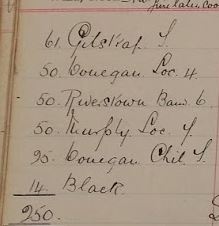 61. Gilstrap. S.
50. Conegan Loc. 4.
50. Riverstown Bam. 6.
50. Murphy Loc. Y.
25. Conegan Chil. S.
14. Black.
250.